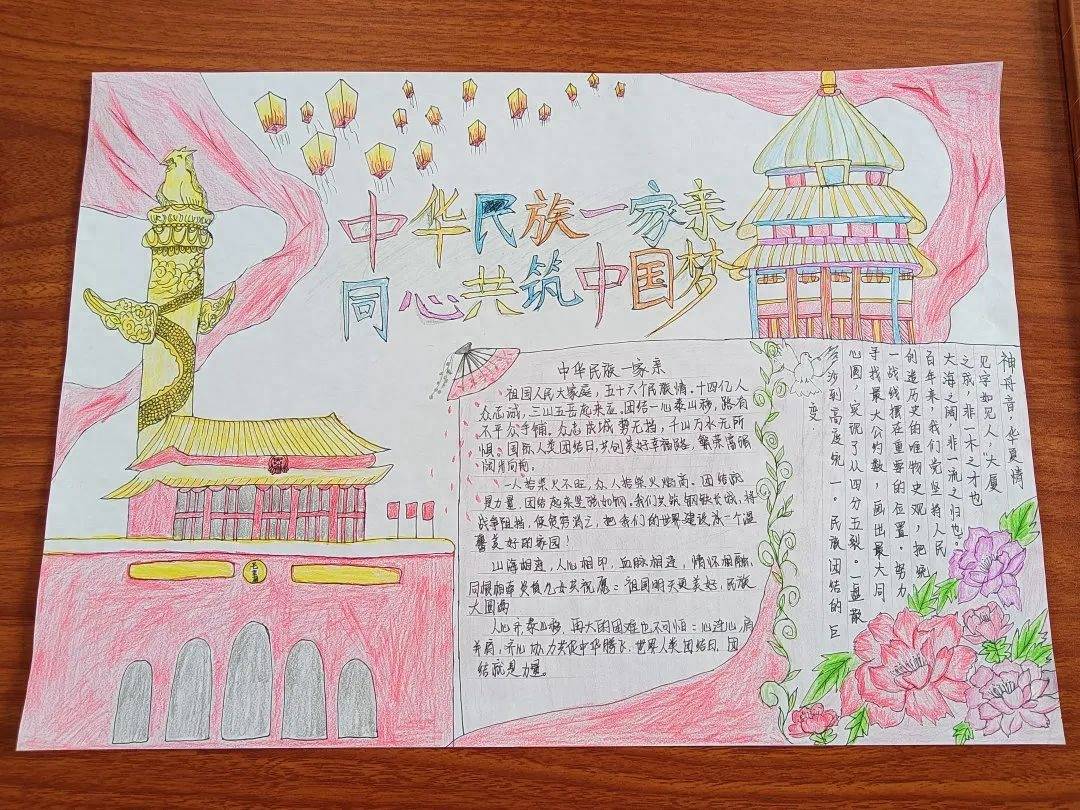 中华民族一家亲
同心共筑中国梦
中华民族一家亲
祖国人民大家庭，五十六个民族情。十四亿人
众志诚，三山五岳起来应。团结一心泰山移，路有
不平众手铺。众志成城势无挡，千山万水无所
惧。国际人类团结日，共创美好幸福路，繁荣富强
阔步向前。
一人拾柴火不旺，众人拾柴火焰高。团结就
是力量，团结起来坚强如钢。我们共筑钢铁长城，将
战争阻挡，使贫穷消亡，把我们的世界建设成一个温
馨美好的家园！
山海相连，人心相印，血脉相连，情怀相融，
同根相牵炎黄儿女共祝愿：祖国明天更美好，民族
大团圆
人心齐泰山移，再大的困难也不可怕：心连心肩
并肩，齐心协力共促中华腾飞，世界人类团结日，团
结就是力量。
神舟音，华夏情
见字如见人，“大厦
之成，非一木之才也
大海之阔，非一流之归也。”
百年来，我们党坚持人民
创造历史的唯物史观，把统
一战线摆在重要的位置。努力
寻找最大公约数，画出最大同
心圆，实现了从四分五裂。一盘散
沙到高度统一。民族团结的巨
变